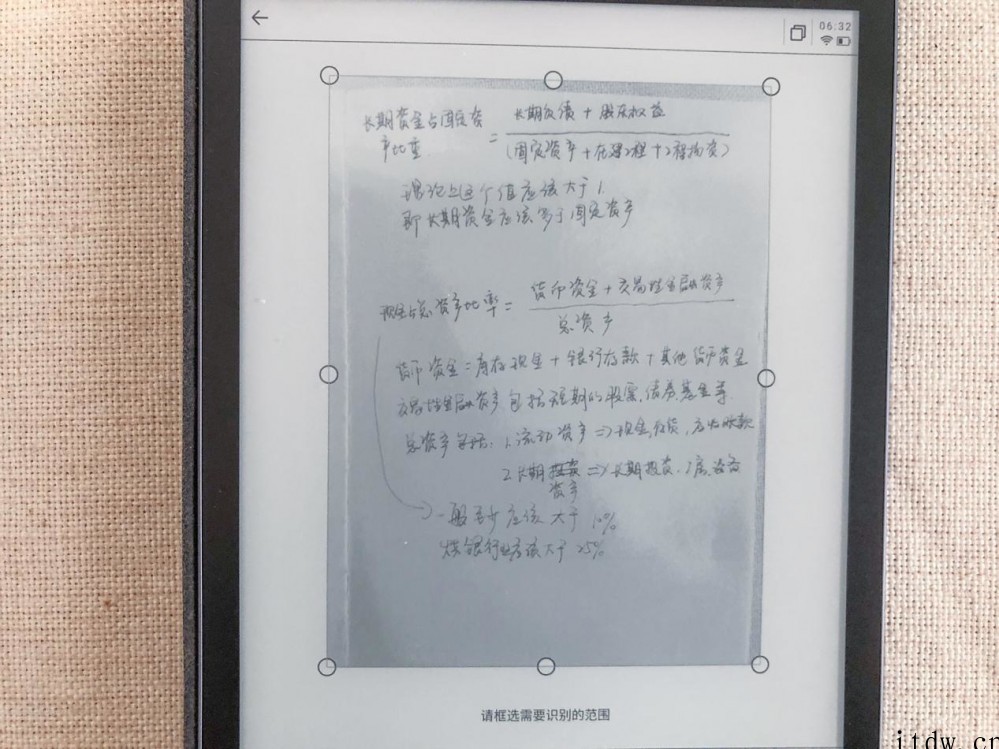 06:32
长期资金占固定资
产比重
=
长期负债 + 股东权益
(固定资产 + 在建工程 + 工程物资)
理论上这个值应该大于1.
即长期资金应该多于固定资产
现金占总资产比率 =
货币资金 + 交易性金融资产
总资产
货币资金 = 库存现金 + 银行存款 + 其他货币资金
交易性金融资产包括短期的股票,债券,基金等
总资产包括: 1.流动资产 => 现金,存货,应收账款
2.长期投资 => 长期投资,厂房,设备
资产
一般至少应该大于 10%
银行业应该大于 25%
请框选需要识别的范围
itdw.cn